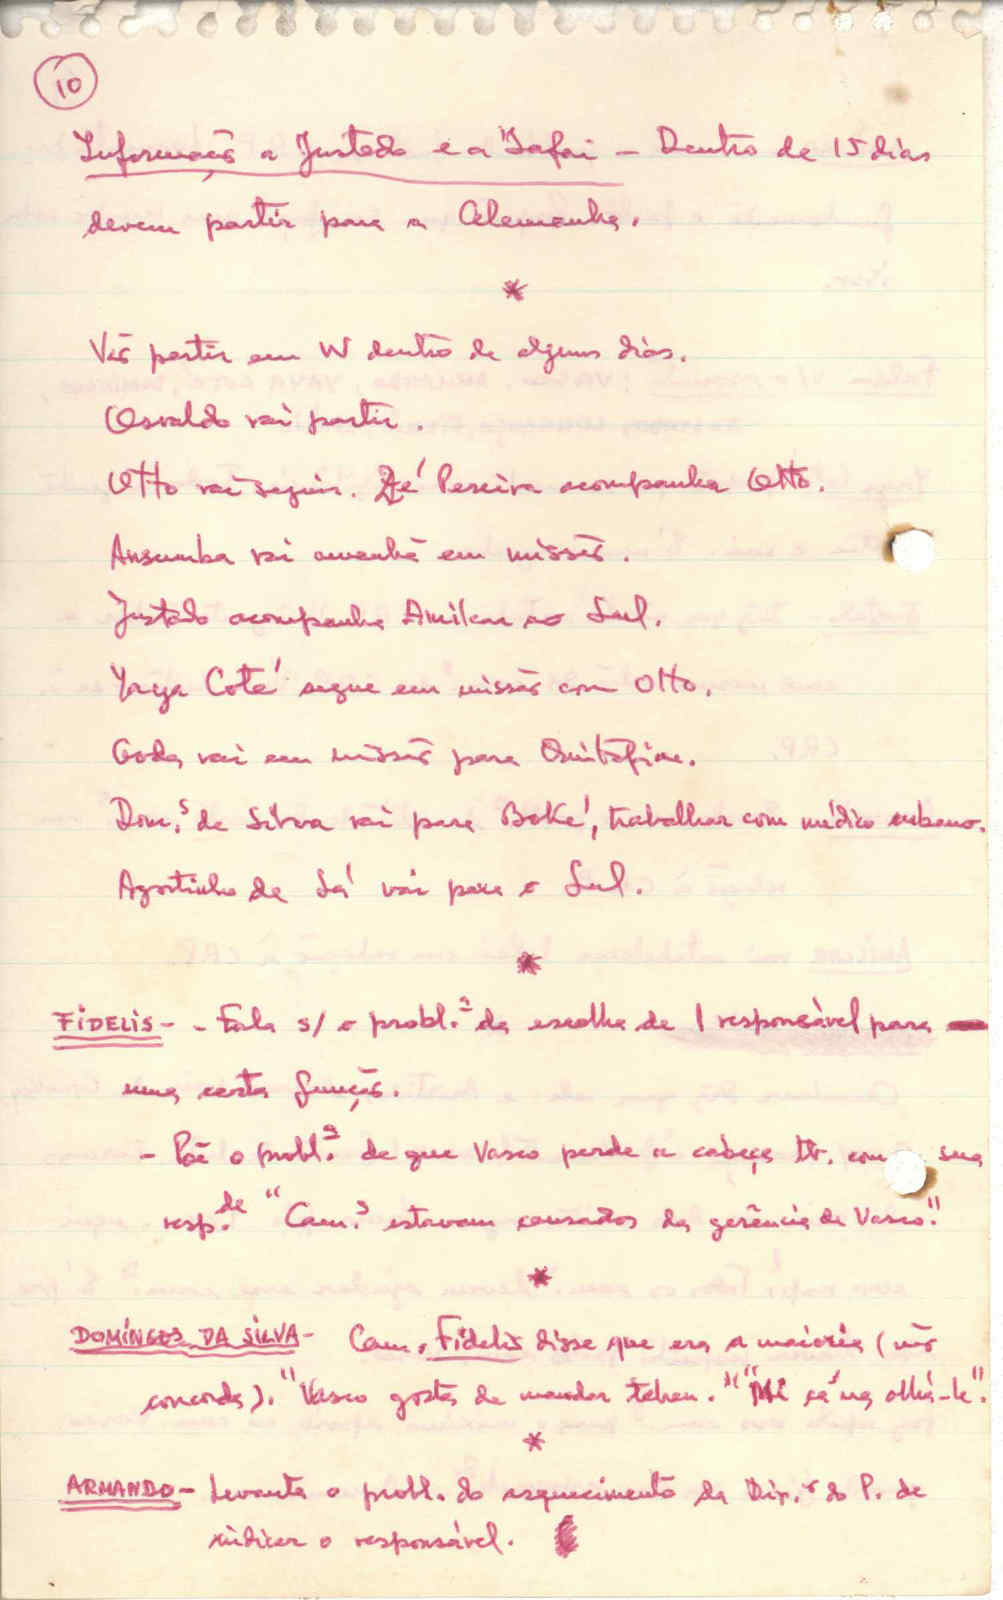 10
Informação a Justado e a Iafai – Dentro de 15 dias
devem partir para a Alemanha.
*
Vão partir em W dentro de alguns dias.
Osvaldo vai partir.
Otto vai seguir. Zé Pereira acompanha Otto.
Ansumba vai amanhã em missão.
Justado acompanha Amilcar ao Sul.
Yaya Coté segue em missão com Otto.
Goda vai em missão para Quitafine.
Dom.os da Silva vai para Boké, trabalhar com médico cubano.
Agostinho de Sá vai para o Sul.
*
FIDELIS – - Fala s/ o probl.a da escolha de 1 responsável para
uma certa função.
- Põe o probl.a de que Vasco perde a cabeça com sua
resp.de "Cam.s estavam cansados da gerência de Vasco."
*
DOMINGOS DA SILVA – Cam. Fidelis disse que era a maioria (não
concorda). "Vasco gosta de mandar" "Mi cá na olhá-l'".
*
ARMANDO – Levanta o probl. do esquecimento da Dir. do P. de
indicar o responsável.